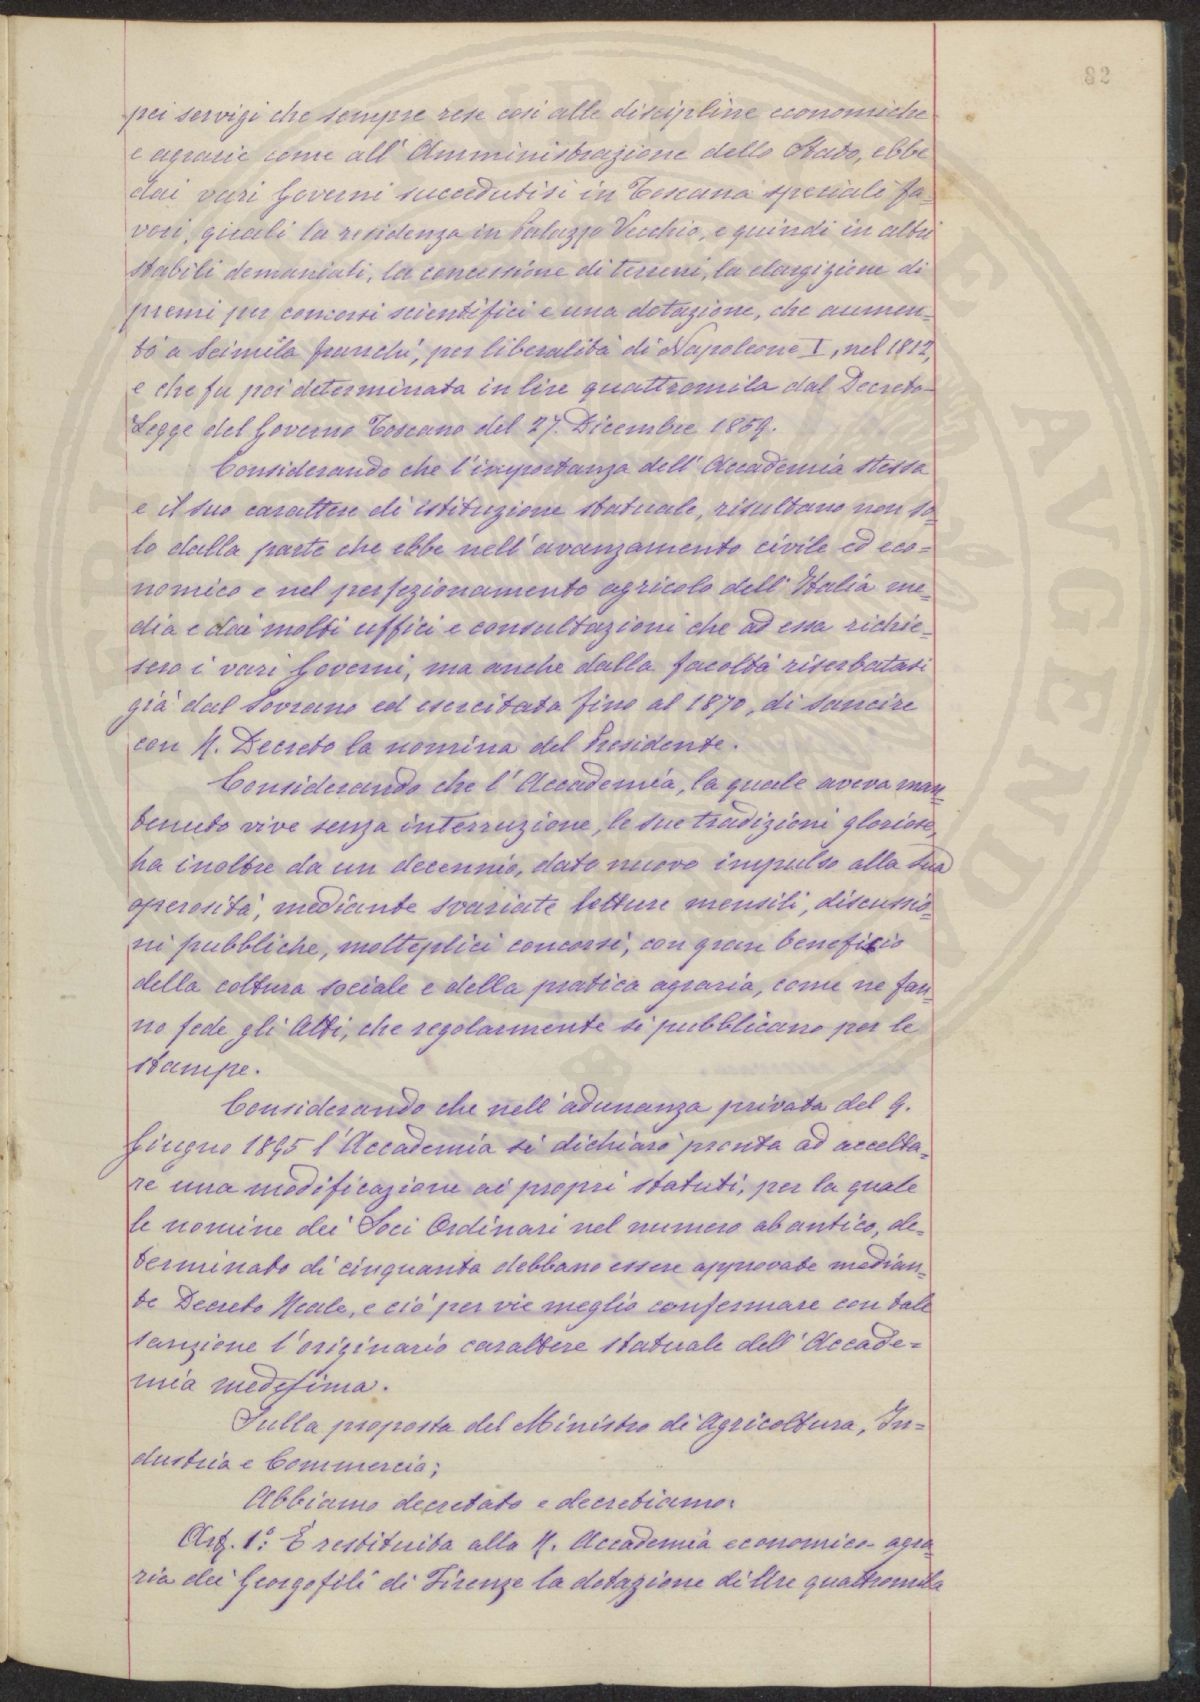 82
pei servigi che sempre rese così alle discipline economiche
e agrarie come all'Amministrazione dello Stato, ebbe
dai vari Governi succedutisi in Toscana speciali fa=
vori, quali la residenza in Palazzo Vecchio, e quindi in altri
stabili demaniali, la concessione di terreni, la elargizione di
premi per concorsi scientifici e una dotazione, che aumen=
tò a seimila franchi, per liberalità di Napoleone I, nel 1812,
e che fu poi determinata in lire quattromila dal Decreto-
Legge del Governo Toscano del 27. Dicembre 1859.
Considerando che l'importanza dell'Accademia stessa
e il suo carattere di istituzione statuale, risultano non so=
lo dalla parte che ebbe nell'avanzamento civile ed eco=
nomico e nel perfezionamento agricolo dell'Italia me=
dia e dai molti uffici e consultazioni che ad essa richie=
sero i vari Governi, ma anche dalla facoltà riserbatasi
già dal Sovrano ed esercitata fino al 1870, di sancire
con R. Decreto la nomina del Presidente.
Considerando che l'Accademia, la quale aveva man=
tenuto vive senza interruzione, le sue tradizioni gloriose,
ha inoltre da un decennio, dato nuovo impulso alla sua
operosità, mediante svariate letture mensili, discussio=
ni pubbliche, molteplici concorsi, con gran beneficio
della coltura sociale e della pratica agraria, come ne fan=
no fede gli Atti, che regolarmente si pubblicano per le
stampe.
Considerando che nell'adunanza privata del 9.
Giugno 1895 l'Accademia si dichiarò pronta ad accetta=
re una modificazione ai propri statuti, per la quale
le nomine dei Soci Ordinari nel numero ab antico, de=
terminato di cinquanta debbano essere approvate median=
te Decreto Reale, e ciò per vie meglio confermare con tale
sanzione l'originario carattere statuale dell'Accade=
mia medesima.
Sulla proposta del Ministro di Agricoltura, In=
dustria e Commercio;
Abbiamo decretato e decretiamo:
Art. 1.º È restituita alla R. Accademia economico-agra=
ria dei Georgofili di Firenze la dotazione di lire quattromila